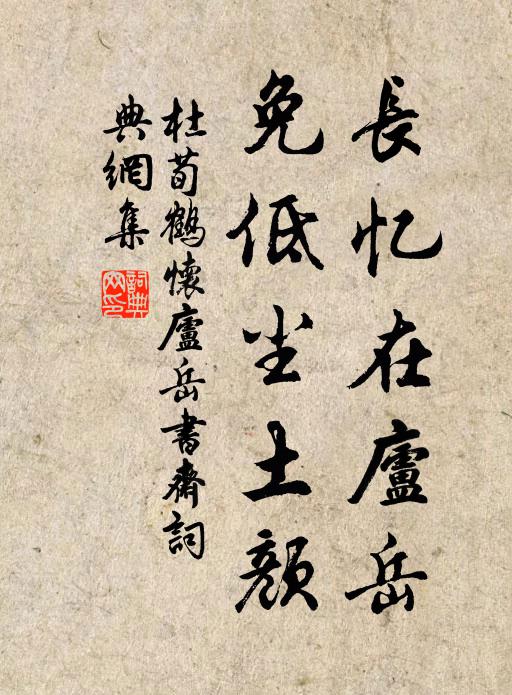 長忆在廬岳
免低尘土顔
杜荀鶴懷廬岳書齋詞
典網集
詞典网印